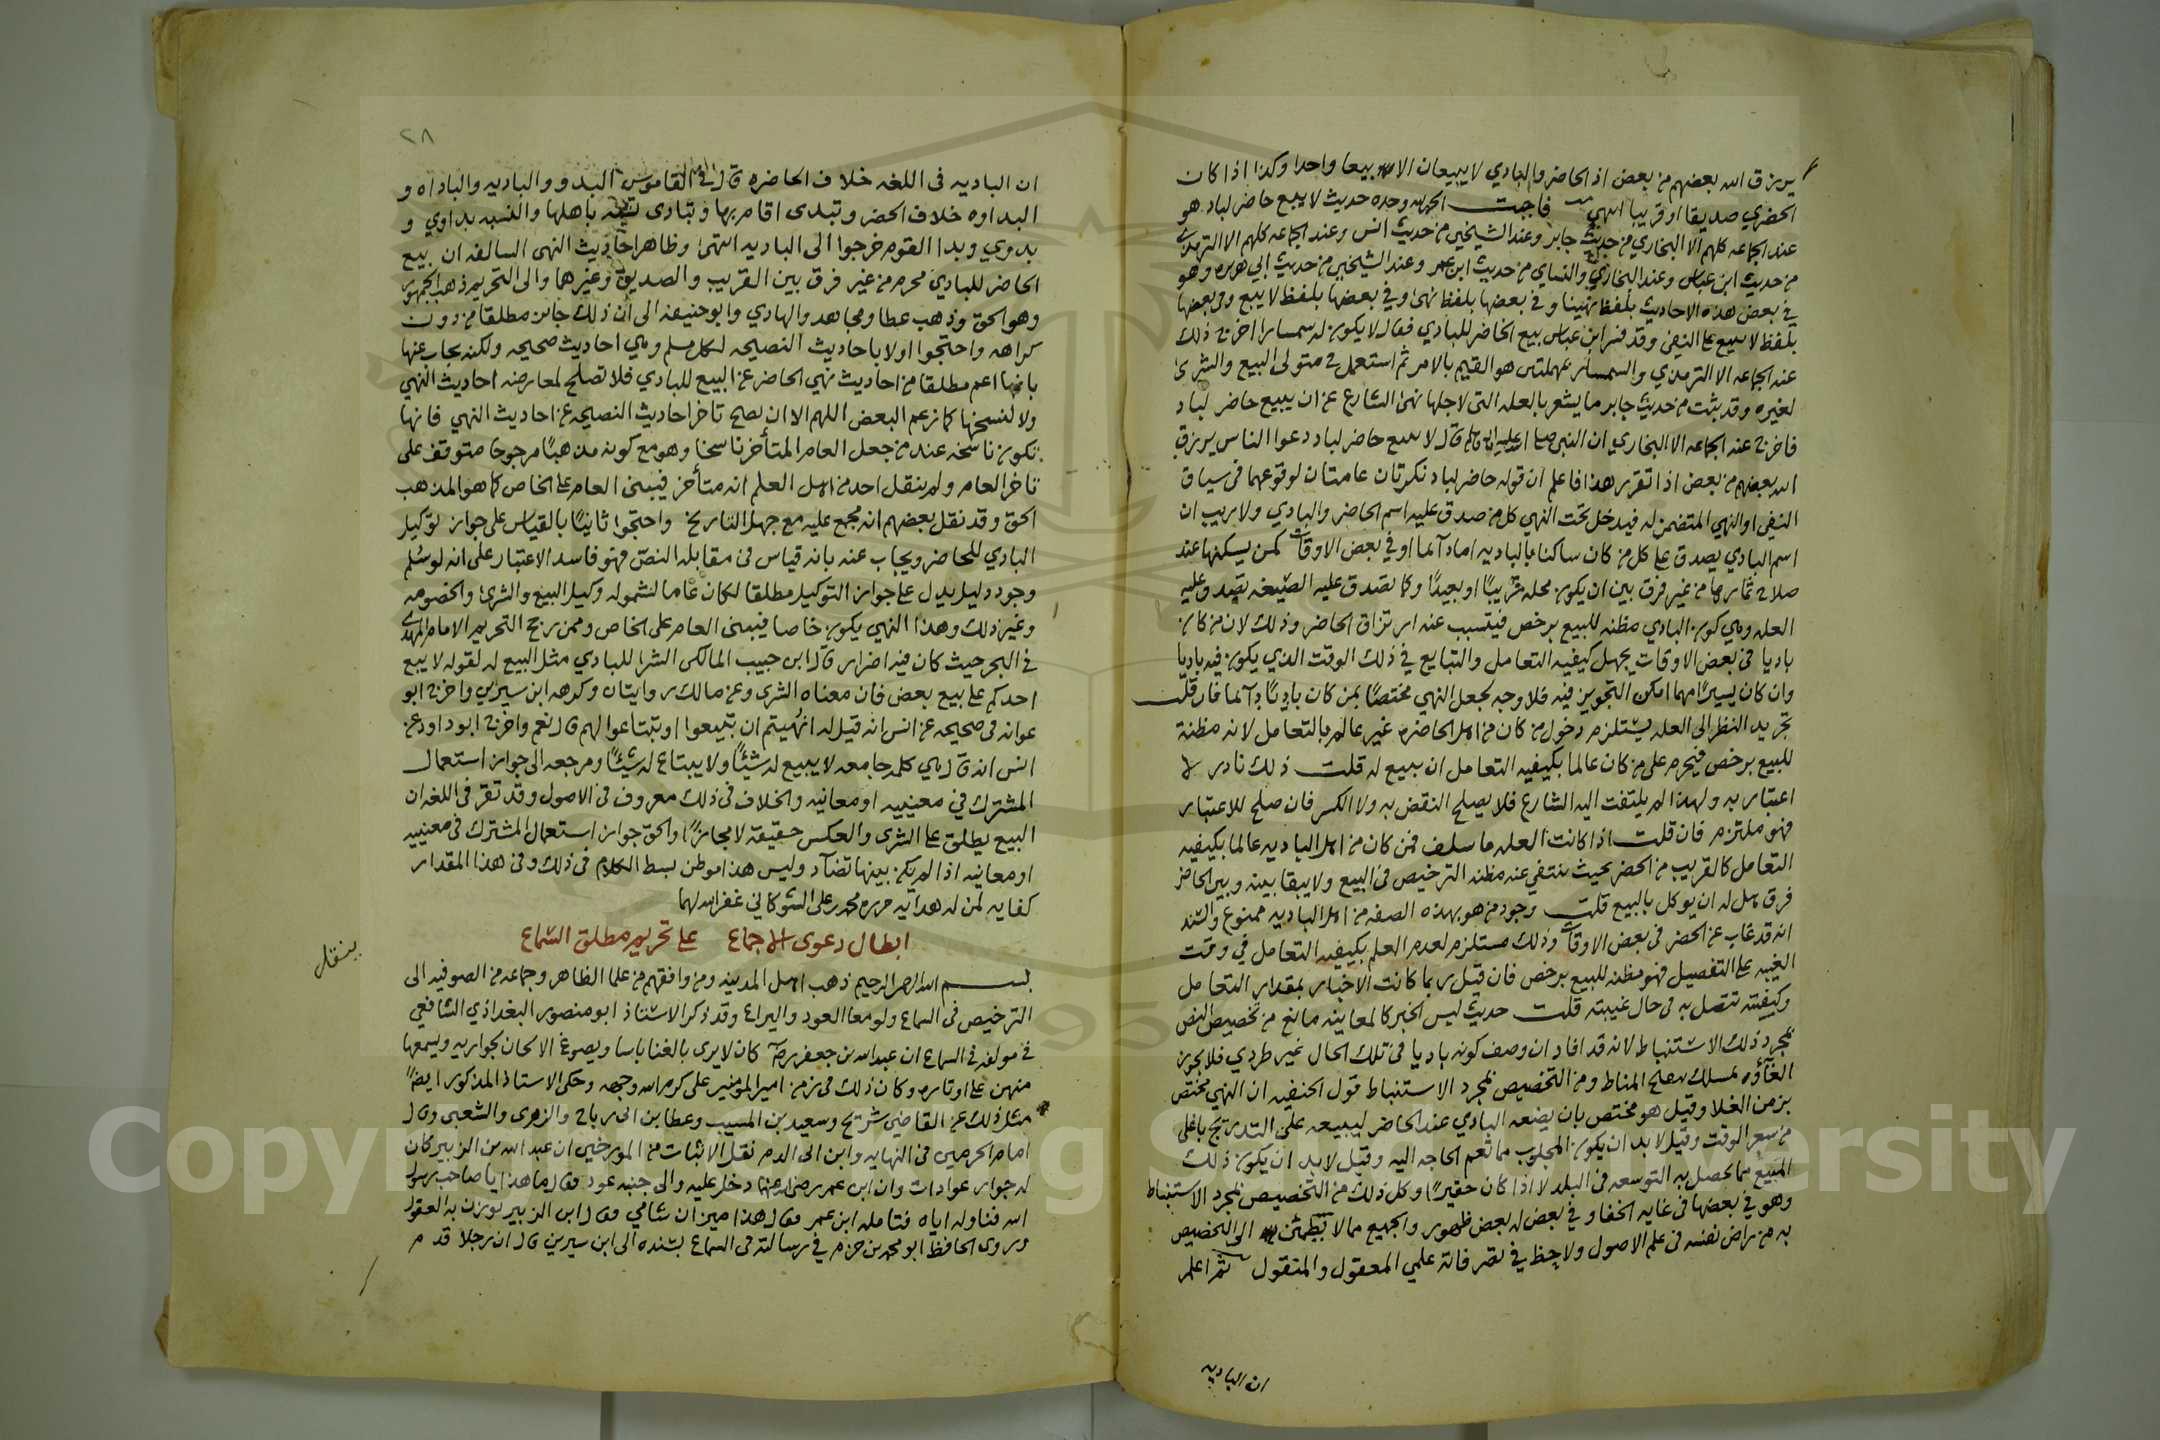 يرزق الله بعضهم من بعض اذ الحاضر والبادي لا يبيعان الا بيعا واحدا وكذا اذا كان
الحضري صديقا او قريبا انتهى فاجبت الحمد لله وحده حديث لا يبع حاضر لباد هو
عند الجماعه كلهم الا البخاري من حديث جابر وعند الشيخين من حديث انس وعند الجماعه كلهم الا الترمذي
من حديث ابن عباس وعند البخاري والنساي من حديث ابن عمر وعند الشيخين من حديث ابي هريره وهو
في بعض هذه الاحاديث بلفظ نهينا وفي بعضها بلفظ نهى وفي بعضها بلفظ لا يبع وفي بعضها
بلفظ لا يبيع على النفي وقد فسر ابن عباس بيع الحاضر للبادي فقال لا يكون له سمسارا اخرج ذلك
عند الجماعه الا الترمذي والسمسار بمهملتين هو القيم بالامر ثم استعمل في متولي البيع والشرى
لغيره وقد ثبت من حديث جابر ما يشعر بالعله التي لاجلها نهى الشارع عن ان يبيع حاضر لباد
فاخرج عنه الجماعه الا البخاري ان النبي صلى الله عليه واله وسلم قال لا يبيع حاضر لباد دعوا الناس يرزق
الله بعضهم من بعض اذا تقرر هذا فاعلم ان قوله حاضر لباد نكرتان عامتان لوقوعهما في سياق
النفي او النهي المتضمن له فيدخل تحت النهي كل من صدق عليه اسم الحاضر والبادي ولا ريب ان
اسم البادي يصدق على كل من كان ساكنا بالباديه اما دآئما او في بعض الاوقات كمن يسكنها عند
صلاح ثمارها من غير فرق بين ان يكون محله قريبًا او بعيدًا وكما تصدق عليه الصيغه تصدق عليه
العله وهي كون البادي مظنه للبيع برخص فيتسبب عنه ارتزاق الحاضر وذلك لان من كان
باديا في بعض الاوقات يجهل كيفيه التعامل والتبايع في ذلك الوقت الذي يكون فيه باديا
وان كان يسيرًا مهما امكن التجويز فيه فلا وجه لجعل النهي مختصًا بمن كان باديًا دآئما فان قلت
تجريد النظر الى العله يستلزم دخول من كان من اهل الحاضره غير عالم بالتعامل لانه مظنة
للبيع برخص فيحرم على من كان عالما بكيفيه التعامل ان يبيع له قلت ذلك نادر لا
اعتبار به ولهذا لم يلتفت اليه الشارع فلا يصلح النقض به ولا الكسر فان صلح للاعتبار
فهو ملتزم فان قلت اذا كانت العله ما سلف فمن كان من اهل الباديه عالما بكيفيه
التعامل كالقريب من الحضر بحيث ينتفي عنه مظنه الترخيص في البيع ولا يبقا بينه وبين الحاضر
فرق هل له ان يوكل بالبيع قلت وجود من هو بهذه الصفه من اهل الباديه ممنوع والسند
انه قد غاب عن الحضر في بعض الاوقات وذلك مستلزم لعدم العلم بكيفيه التعامل في وقت
الغيبه على التفصيل فهو مظنه للبيع برخص فان قيل ربما كانت الاخبار بمقدار التعامل
وكيفيته تتصل به في حال غيبته قلت حديث ليس الخبر كالمعاينه مانع من تخصيص النص
بمجرد ذلك الاستنباط لانه قد افاد ان وصف كونه باديا في تلك الحال غير طردي فلا يجوز
الغآؤه بمسلك تنقيح المناط ومن التخصيص بمجرد الاستنباط قول الحنفيه ان النهي مختص
بزمن الغلا وقيل هو مختص بان يضعه البادي عند الحاضر ليبيعه على التدريج باغلى
من سعر الوقت وقيل لا بد ان يكون المجلوب مما تعم الحاجه اليه وقيل لا بد ان يكون ذلك
المبيع مما يحصل به التوسعه في البلد لا اذا كان حقيرًا وكل ذلك من التخصيص بمجرد الاستنباط
وهو في بعضها في غايه الخفا وفي بعض له بعض ظهور والجميع مما لا يطمئن الى التخصيص
به من راض نفسه في علم الاصول ولاحظ في تصرفاته علمي المعقول والمنقول ثم اعلم
ان الباديه
٢٨
ان الباديه في اللغه خلاف الحاضره قال في القاموس البدو والباديه والباداه و
البداوه خلاف الحضر وتبدى اقام بها وتبادى تشبه باهلها والنسبه بداوي و
بدوي وبدا القوم خرجوا الى الباديه انتهى وظاهر احاديث النهي السالفه ان بيع
الحاضر للبادي محرم من غير فرق بين القريب والصديق وغيرهما والى التحريم ذهب الجمهور
وهو الحق وذهب عطا ومجاهد والهادي وابو حنيفه الى ان ذلك جائز مطلقا من دون
كراهه واحتجوا اولا باحاديث النصيحه لكل مسلم وهي احاديث صحيحه ولكنه يجاب عنها
بانها اعم مطلقا من احاديث نهي الحاضر عن البيع للبادي فلا تصلح لمعارضه احاديث النهي
ولا لنسخها كما زعم البعض اللهم الا ان يصح تاخر احاديث النصيحه عن احاديث النهي فانها
تكون ناسخه عند من جعل العام المتأخر ناسخا وهو مع كونه مذهبًا مرجوحا متوقف على
تاخر العام ولم ينقل احد من اهل العلم انه متأخر فيبنى العام على الخاص كما هو المذهب
الحق وقد نقل بعضهم انه مجمع عليه مع جهل التاريخ واحتجوا ثانيًا بالقياس على جواز توكيل
البادي للحاضر ويجاب عنه بانه قياس في مقابله النص فهو فاسد الاعتبار على انه لو سُلم
وجود دليل يدل على جواز التوكيل مطلقا لكان عاما لشموله وكيل البيع والشرى والخصومه
وغير ذلك وهذا النهي يكون خاصا فيبنى العام على الخاص وممن رجح التحريم الامام المهدي
في البحر حيث كان فيه اضرار قال ابن حبيب المالكي الشرا للبادي مثل البيع له لقوله لا يبع
احدكم على بيع بعض فان معناه الشرى وعن مالك روايتان وكرهه ابن سيرين واخرج ابو
عوانه في صحيحه عن انس انه قيل له انُهيتم ان تبيعوا او تبتاعوا لهم قال نعم واخرج ابو داود عن
انس انه قال هي كلمه جامعه لا يبيع له شيئًا ولا يبتاع له شيئًا ومرجعه الى جواز استعمال
المشترك في معنييه او معانيه والخلاف في ذلك معروف في الاصول وقد تقرر في اللغه ان
البيع يطلق على الشرى والعكس حقيقة لا مجازًا والحق جواز استعمال المشترك في معنييه
او معانيه اذا لم يكن بينها تضآد وليس هذا موطن بسط الكلام في ذلك وفي هذا المقدار
كفايه لمن له هدايه حرره محمد بن علي الشوكاني غفر الله لهما
ابطال دعوى الاجماع على تحريم مطلق السماع
بسم الله الرحمن الرحيم ذهب اهل المدينه ومن وافقهم من علما الظاهر وجماعه من الصوفيه الى
الترخيص في السماع ولو مع العود واليراع وقد ذكر الاستاذ ابو منصور البغدادي الشافعي
في مولفه في السماع ان عبدالله بن جعفر رضي كان لا يرى بالغنا باسا ويصوغ الالحان لجواريه ويسمعها
منهن على اوتاره وكان ذلك في زمن امير المومنين علي كرم الله وجهه وحكى الاستاذ المذكور ايضًا
مثل ذلك عن القاضي شريح وسعيد بن المسيب وعطا بن ابي رباح والزهري والشعبي وقال
امام الحرمين في النهايه وابن ابي الدم نقل الاثبات من المورخين ان عبد الله بن الزبير كان
له جوار عوادات وان ابن عمر رضي الله عنهما دخل عليه والى جنبه عود فقال ما هذا يا صاحب رسول
الله فناوله اياه فتامله ابن عمر فقال هذا ميزان شامي فقال ابن الزبير توزن به العقول
وروى الحافظ ابو محمد بن حزم في رسالته في السماع بسنده الى ابن سيرين قال ان رجلا قدم
ينقل
Copyright © King Saud University